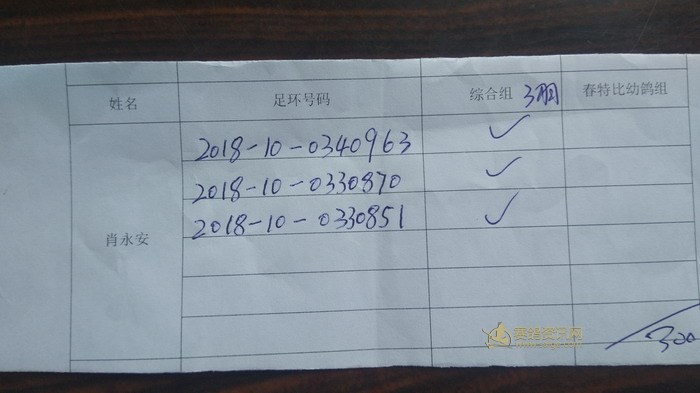 姓名 足环号码 综合组 3羽 春特比幼鸽组
2018-10-0340963 ✓
2018-10-0330870 ✓
肖永安 2018-10-0330851 ✓
300